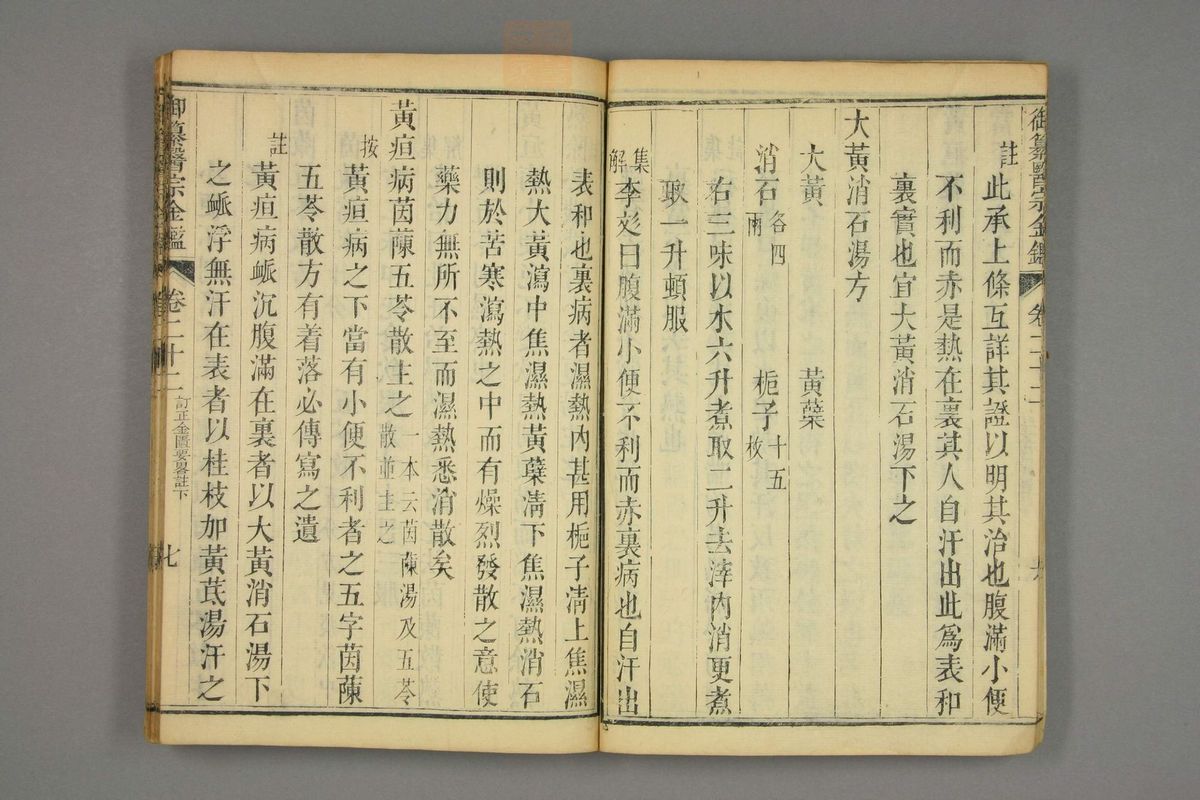 御纂醫宗金鑑 卷二十二
註 此承上條互詳其證以明其治也腹滿小便
不利而赤是熱在裏其人自汗出此為表和
裏實也宜大黃消石湯下之
大黃消石湯方
大黃 黃蘗
消石各四兩 梔子十五枚
右三味以水六升煮取二升去滓內消更煮
取一升頓服
集解 李彣曰腹滿小便不利而赤裏病也自汗出
表和也裏病者濕熱內甚用梔子清上焦濕
熱大黃瀉中焦濕熱黃蘗清下焦濕熱消石
則於苦寒瀉熱之中而有燥烈發散之意使
藥力無所不至而濕熱悉消散矣
黃疸病茵蔯五苓散主之一本云茵蔯湯及五苓散並主之
按 黃疸病之下當有小便不利者之五字茵蔯
五苓散方有着落必傳寫之遺
註 黃疸病脈沉腹滿在裏者以大黃消石湯下
之脈浮無汗在表者以桂枝加黃芪湯汗之
御纂醫宗金鑑 卷二十二 訂正金匱要畧註下 七